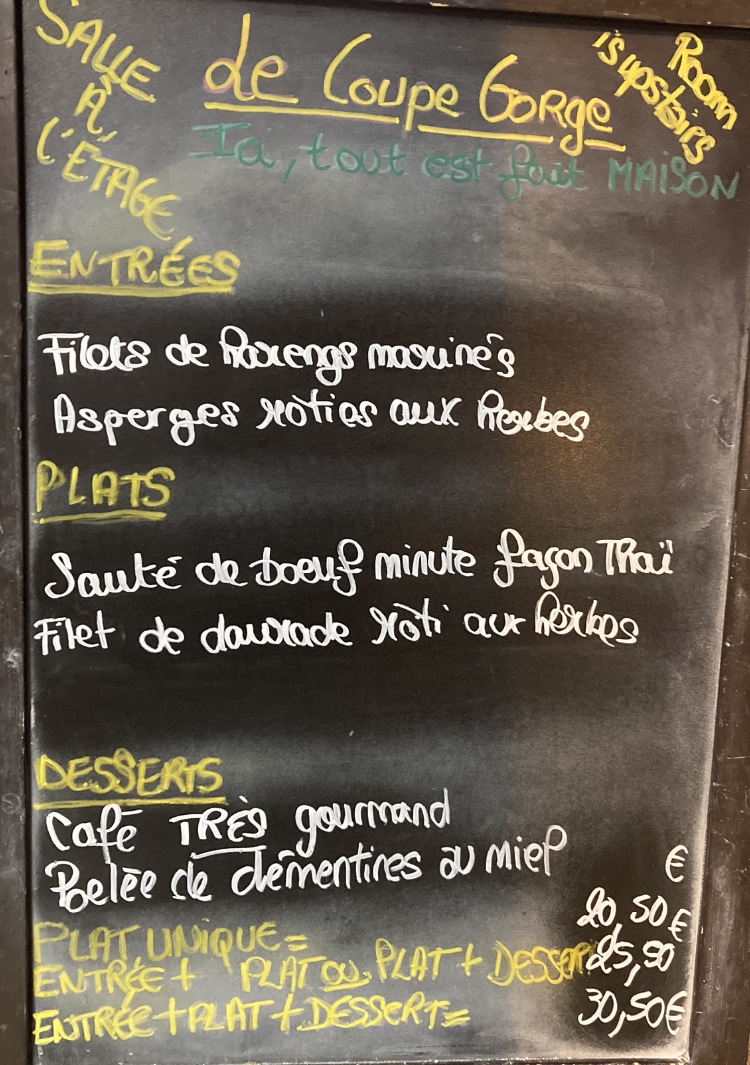 SALLE
À
L'ÉTAGE
Le Coupe Gorge
Room
is upstairs
Ici, tout est fait MAISON
ENTRÉES
Filets de harengs marinés
Asperges rôties aux herbes
PLATS
Sauté de boeuf minute façon Thaï
Filet de daurade rôti aux herbes
DESSERTS
Café TRÈS gourmand
Gelée de clémentines au miel
€
PLAT UNIQUE = 20,50€
ENTRÉE + PLAT OU PLAT + DESSERT 25,50
ENTRÉE + PLAT + DESSERT = 30,50€